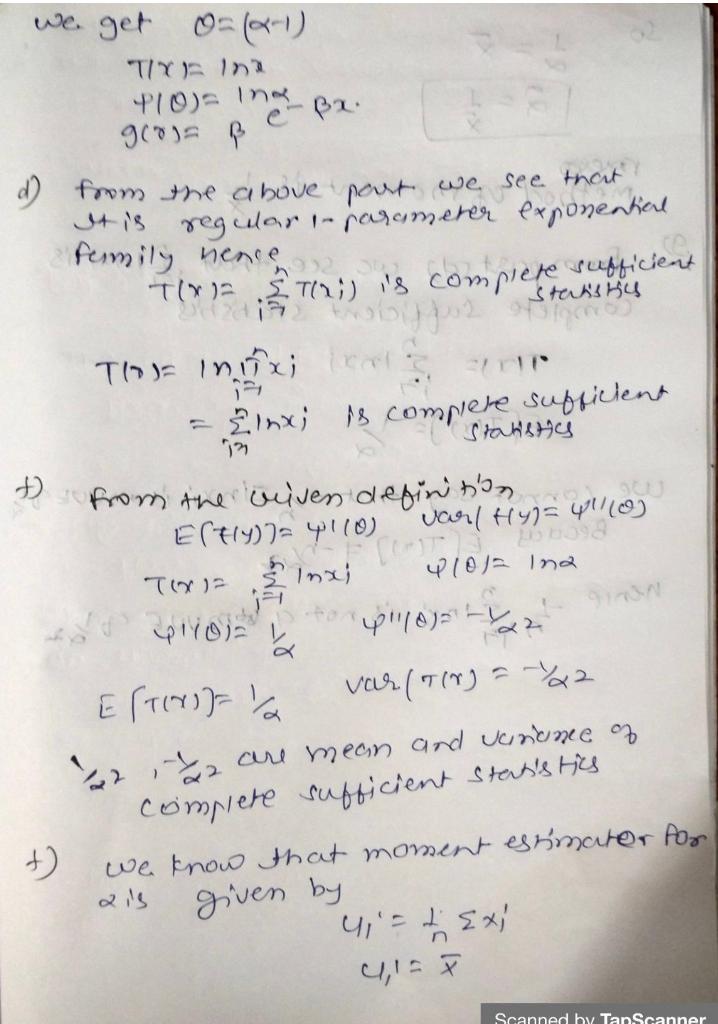 we get θ=(α-1)
T(x)= lnx
Ψ(θ)= lnα
g(x)= β e-βx.
d) from the above part we see that
It is regular 1-parameter exponential
family hence
T(x)= n Σ i=1 T(xi) is complete sufficient
statistics
T(x)= ln n π i=1 xi
= n Σ i=1 lnxi is complete sufficient
statistics
f) from the given definition
E(t(y))= Ψ'(θ) var(t(y)= Ψ''(θ)
T(x)= n Σ i=1 lnxi Ψ(θ)= lnα
Ψ'(θ)= 1/α Ψ''(θ)= -1/α2
E[T(x)]= 1/α var(T(x) = -1/α2
1/α2 , -1/α2 are mean and variance of
complete sufficient statistics
f) we know that moment estimator for
α is given by
μ1' = 1/n Σxi
μ1' = x̄
Scanned by TapScanner